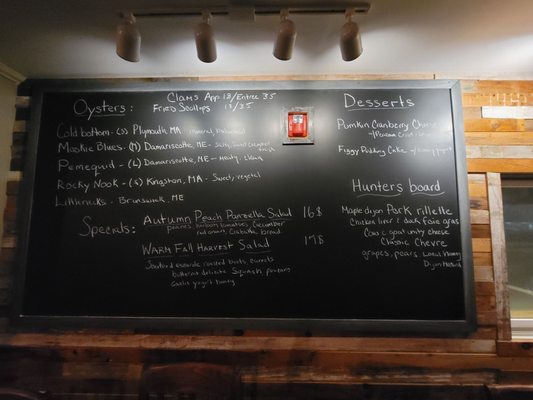 Oysters:
Clams App 18/Entree 35
Fried Scallops 18/35
Cold bottom: (S) Plymouth MA mineral,
Mookie Blues: (M) Damariscotta, ME - Salty, Sweet
Pemequid - (L) Damariscotta, ME - Meaty,
Rocky Nook - (S) Kingston, MA - Sweet, vegetal
Littlenecks - Brunswick, ME
Specials:
Autumn Peach Panzella Salad 16$
peaches, heirloom tomatoes, cucumber
red onions, Ciabatta bread
Warm Fall Harvest Salad 17$
Sauteed escarole roasted beets, carrots
butternut delicata Squash,
Garlic yogurt honey
Desserts
Pumpkin Cranberry
Figgy Pudding Cake
Hunters board
Maple dijon Pork rillette
Chicken liver & duck foie gras
Cow & goat unity cheese
Classic Chevre
grapes, pears Local Honey
Dijon Mustard